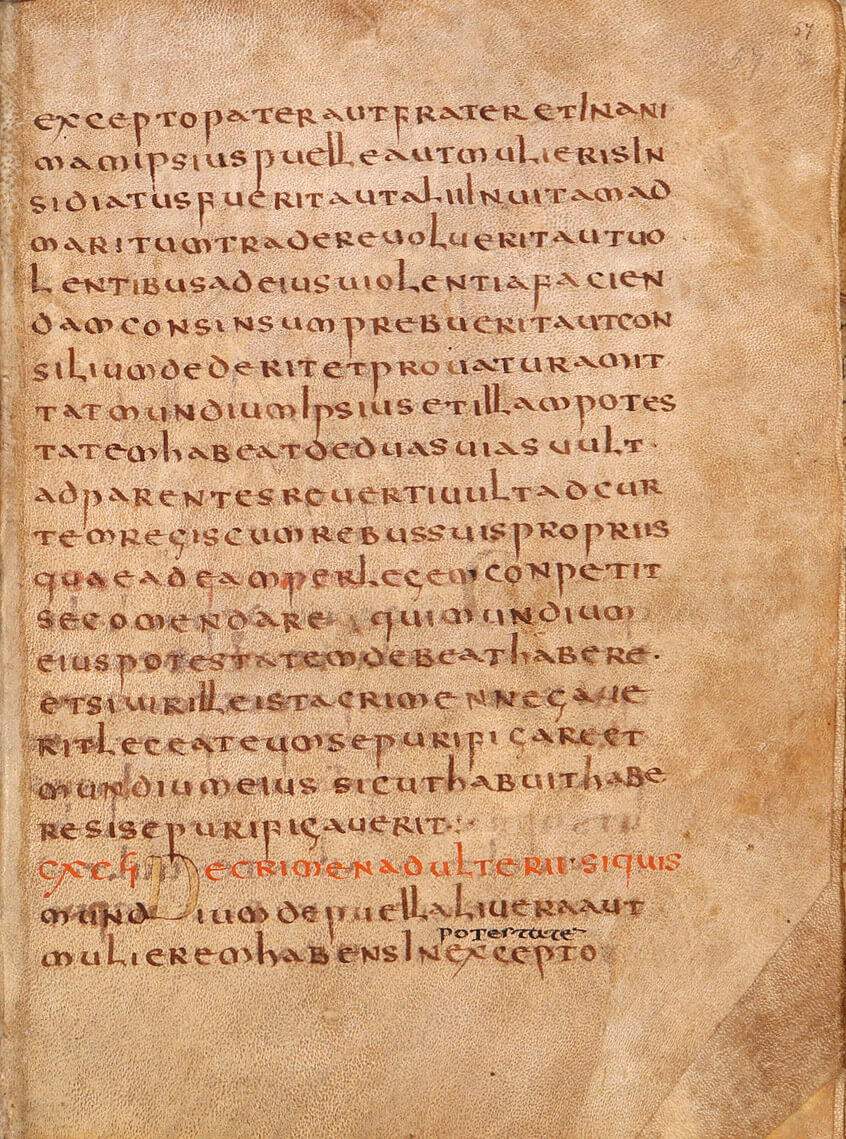 57
exceptopateRautfRateRetInani
mamipsiuspuelleautmulieRisIn
sidiatusfueRitautaliiInuitamad
maRitumtRadeReuolueRitautuo
lentibusadeiusuiolentiafacien
damconsinsumpRebueRitautcon
siliumdedeRitetpRouatuRamit
tatmundiumIpsiusetillampotes
tatemhabeatdeduasuiasuult·
adpaRentesReueRtiuultadcuR
temRegiscumRebussuispRopRiis
quaeadeampeRlegemconpetit
secomendaRe quimundium
eiuspotestatemdebeathabeRe·
etsiuiRilleistacRimenNegaue
RitleceateumsepuRificaReet
mundiumeius sicuthabuithabe
ResisepuRificaueRit·:·
cxcGII DecRimenadulteRii·siquis
mundiumdepuellaliueRaaut
potestate
mulieRemhabensInexcepto